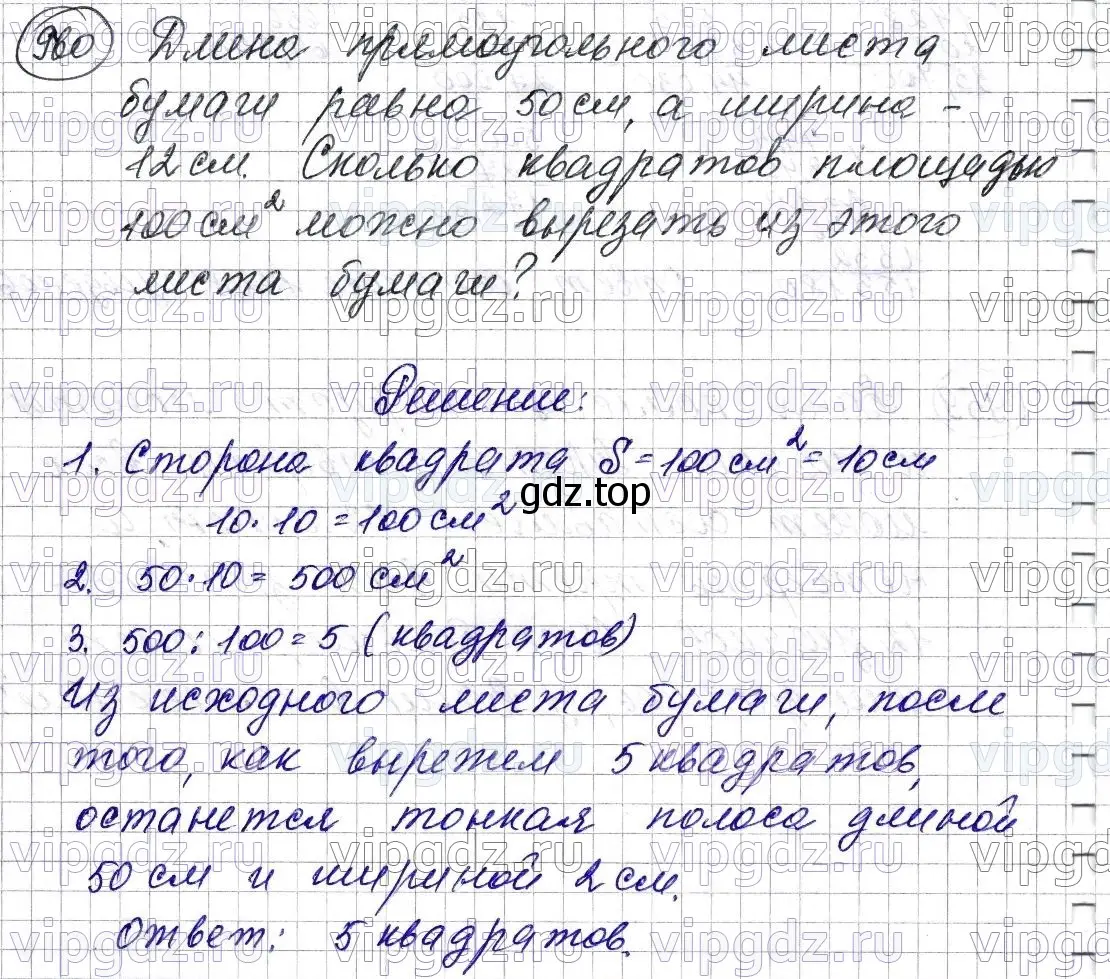 960 Длина прямоугольного листа
бумаги равна 50 см, а ширина -
12 см. Сколько квадратов площадью
100 см² можно вырезать из этого
листа бумаги?
Решение:
1. Сторона квадрата S = 100 см² = 10 см
gdz.top
10 · 10 = 100 см²
2. 50 · 10 = 500 см²
3. 500 : 100 = 5 (квадратов)
Из исходного листа бумаги, после
того, как вырежем 5 квадратов,
останется тонкая полоса длиной
50 см и шириной 2 см.
Ответ: 5 квадратов.
vipgdz.ru